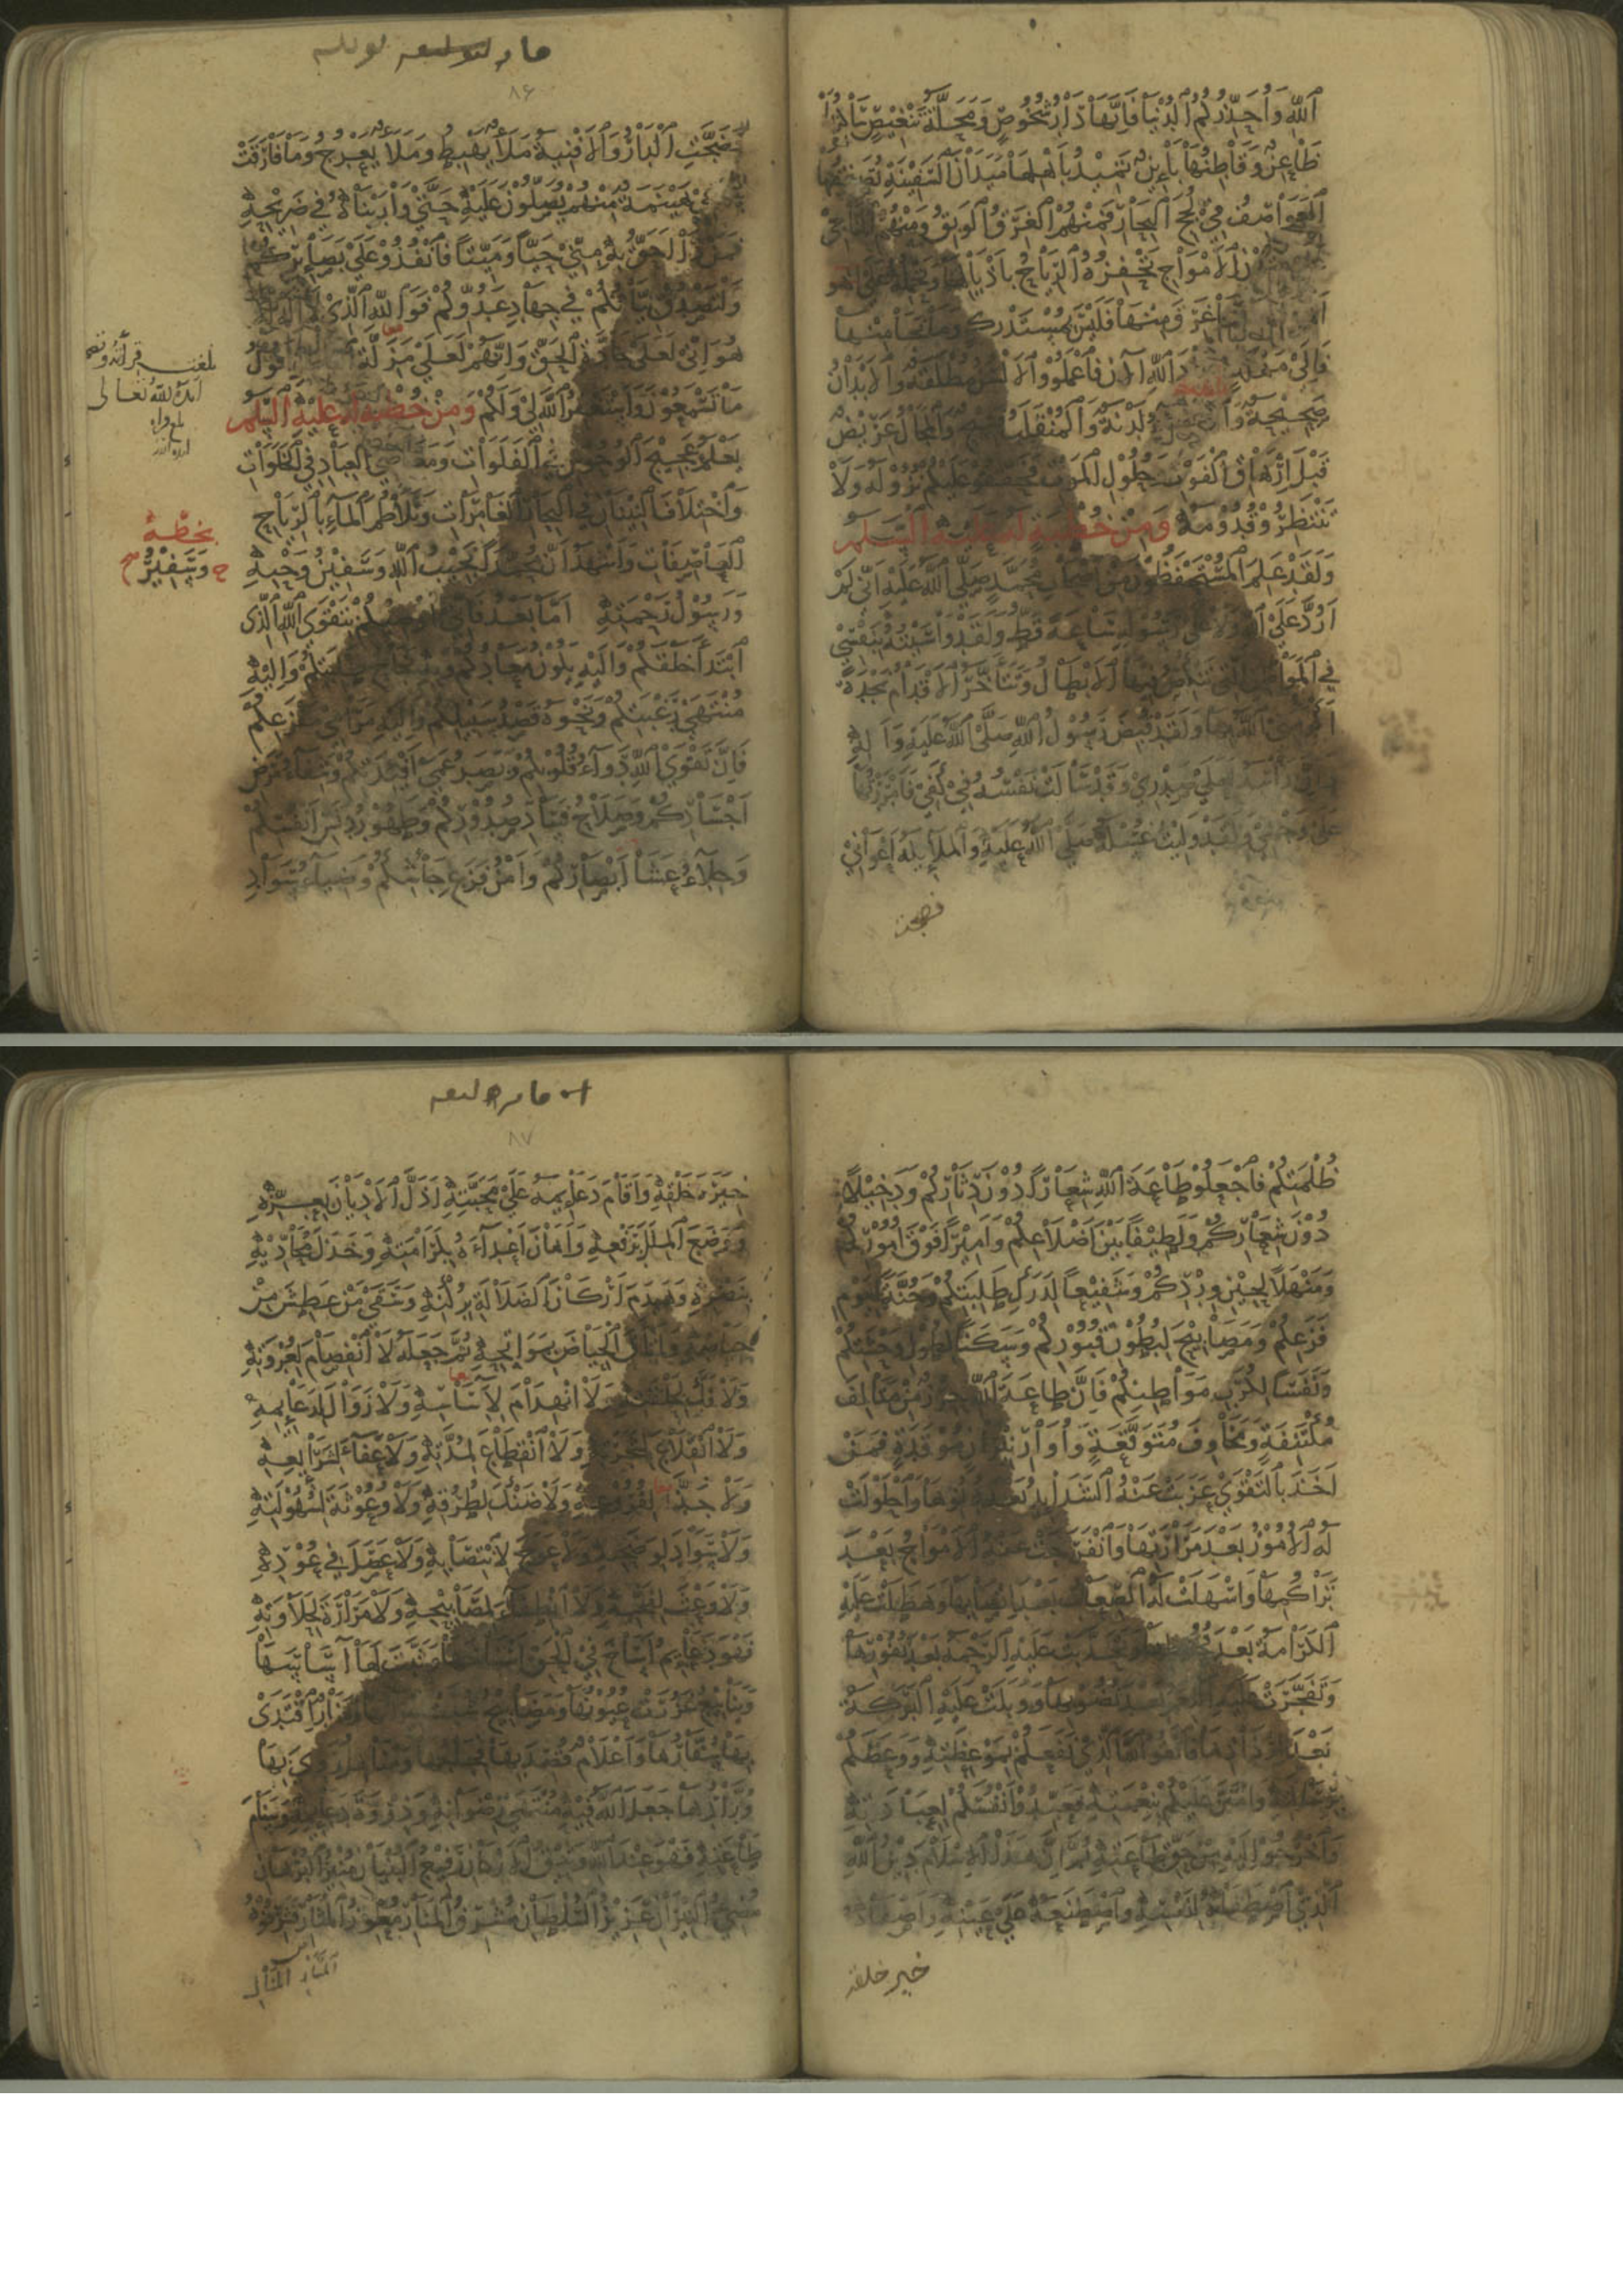 الله وأحذركم الدنيا فإنها دار شخوص ومحلة تنغيص ساكنها
ظاعن وقاطنها بائن تميد بأهلها ميدان السفينة تصفقها
العواصف في لجج البحار فمنهم الغرق الوبق ومنهم الناجي
الأمواج تحفزه الرياح بأذيالها وتحمله على أهوالها
غرق منها فليس بمستدرك وما نجا منها
فإلى مهلك عباد الله الآن فاعملوا والألسن مطلقة والأبدان
صحيحة والأعضاء لدنة والمنقلب فسيح والمجال عريض
قبل إرهاق الفوت وحلول الموت فحققوا عليكم نزوله ولا
تنتظروا قدومه ومن خطبة له عليه السلام
ولقد علم المستحفظون من أصحاب محمد صلى الله عليه أني لم
أرد على الله ولا على رسوله ساعة قط ولقد واسيته بنفسي
في المواطن التي تنكص فيها الأبطال وتتأخر الأقدام نجدة
أكرمني الله بها ولقد قبض رسول الله صلى الله عليه وآله
وإن رأسه لعلى صدري وقد سالت نفسه في كفي فأمررتها
على وجهي ولقد وليت غسله صلى الله عليه والملائكة أعواني
فضجت
٨٦
فضجت الدار والأفنية ملأ يهبط وملأ يعرج وما فارقت
سمعي هينمة منهم يصلون عليه حتى واريناه في ضريحه
فمن ذا أحق به مني حيا وميتا فانفذوا على بصائركم
ولتصدق نياتكم في جهاد عدوكم فوالذي لا إله إلا
هو إني لعلى جادة الحق وإنهم لعلى مزلة الباطل أقول
ما تسمعون وأستغفر الله لي ولكم ومن خطبة له عليه السلام
يعلم عجيج الوحوش في الفلوات ومعاصي العباد في الخلوات
واختلاف النينان في البحار الغامرات وتلاطم الماء بالرياح
العاصفات وأشهد أن محمدا نجيب الله وسفير وحيه
ورسول رحمته أما بعد فإني أوصيكم بتقوى الله الذي
ابتدأ خلقكم وإليه يكون معادكم وبه نجاح طلبتكم وإليه
منتهى رغبتكم ونحوه قصد سبيلكم وإليه مرامي مفزعكم
فإن تقوى الله دواء داء قلوبكم وبصر عمى أفئدتكم وشفاء مرض
أجسادكم وصلاح فساد صدوركم وطهور دنس أنفسكم
وجلاء عشا أبصاركم وأمن فزع جأشكم وضياء سواد
بلغت قراءة
أيده الله تعالى
بخطه
وسفير
ظلمتكم فاجعلوا طاعة الله شعارا دون دثاركم ودخيلا
دون شعاركم ولطيفا بين أضلاعكم وأميرا فوق أموركم
ومنهلا لحين وردكم وشفيعا لدرك طلبتكم وجنة ليوم
فزعكم ومصابيح لبطون قبوركم وسكنا لطول وحشتكم
ونفسا لكرب مواطنكم فإن طاعة الله حرز من متالف
مكتنفة ومخاوف متوقعة وأوار نيران موقدة فمن
أخذ بالتقوى عزبت عنه الشدائد بعد دنوها واحلولت
له الأمور بعد مرارتها وانفرجت عنه الأمواج بعد
تراكمها وأسهلت له الصعاب بعد إنصابها وهطلت عليه
الكرامة بعد قحوطها وتحدبت عليه الرحمة بعد نفورها
وتفجرت عليه النعم بعد نضوبها ووبلت عليه البركة
بعد إرذاذها فاتقوا الله الذي نفعكم بموعظته ووعظكم
برسالته وامتن عليكم بنعمته فعبدوا أنفسكم لعبادته
واخرجوا إليه من حق طاعته ثم إن هذا الإسلام دين الله
الذي اصطفاه لنفسه واصطنعه على عينه وأصفاه
خير خلقه
٨٧
خيرة خلقه وأقام دعائمه على محبته أذل الأديان بعزه
ووضع الملل برفعه وأهان أعداءه بكرامته وخذل محاديه
بنصره وهدم أركان الضلالة بركنه وسقى من عطش من
حياضه وأتأق الحياض بمواتحه ثم جعله لا انفصام لعروته
ولا فك لحلقته ولا انهدام لأساسه ولا زوال لدعائمه
ولا انقلاع لشجرته ولا انقطاع لمدته ولا عفاء لشرائعه
ولا جذ لفروعه ولا ضنك لطرقه ولا وعوثة لسهولته
ولا سواد لوضحه ولا عوج لانتصابه ولا عصل في عوده
ولا وعث لفجه ولا انطفاء لمصابيحه ولا مرارة لحلاوته
فهو دعائم أساخ في الحق أسناخها وثبت لها آساسها
وينابيع غزرت عيونها ومصابيح شبت نيرانها ومنار اقتدى
بها سفارها وأعلام قصد بها فجاجها ومناهل روي بها
ورادها جعل الله فيه منتهى رضوانه وذروة دعائمه وسنام
طاعته فهو عند الله وثيق الأركان رفيع البنيان منير البرهان
مضيء النيران عزيز السلطان مشرف المنار معوذ المثار فشرفوه